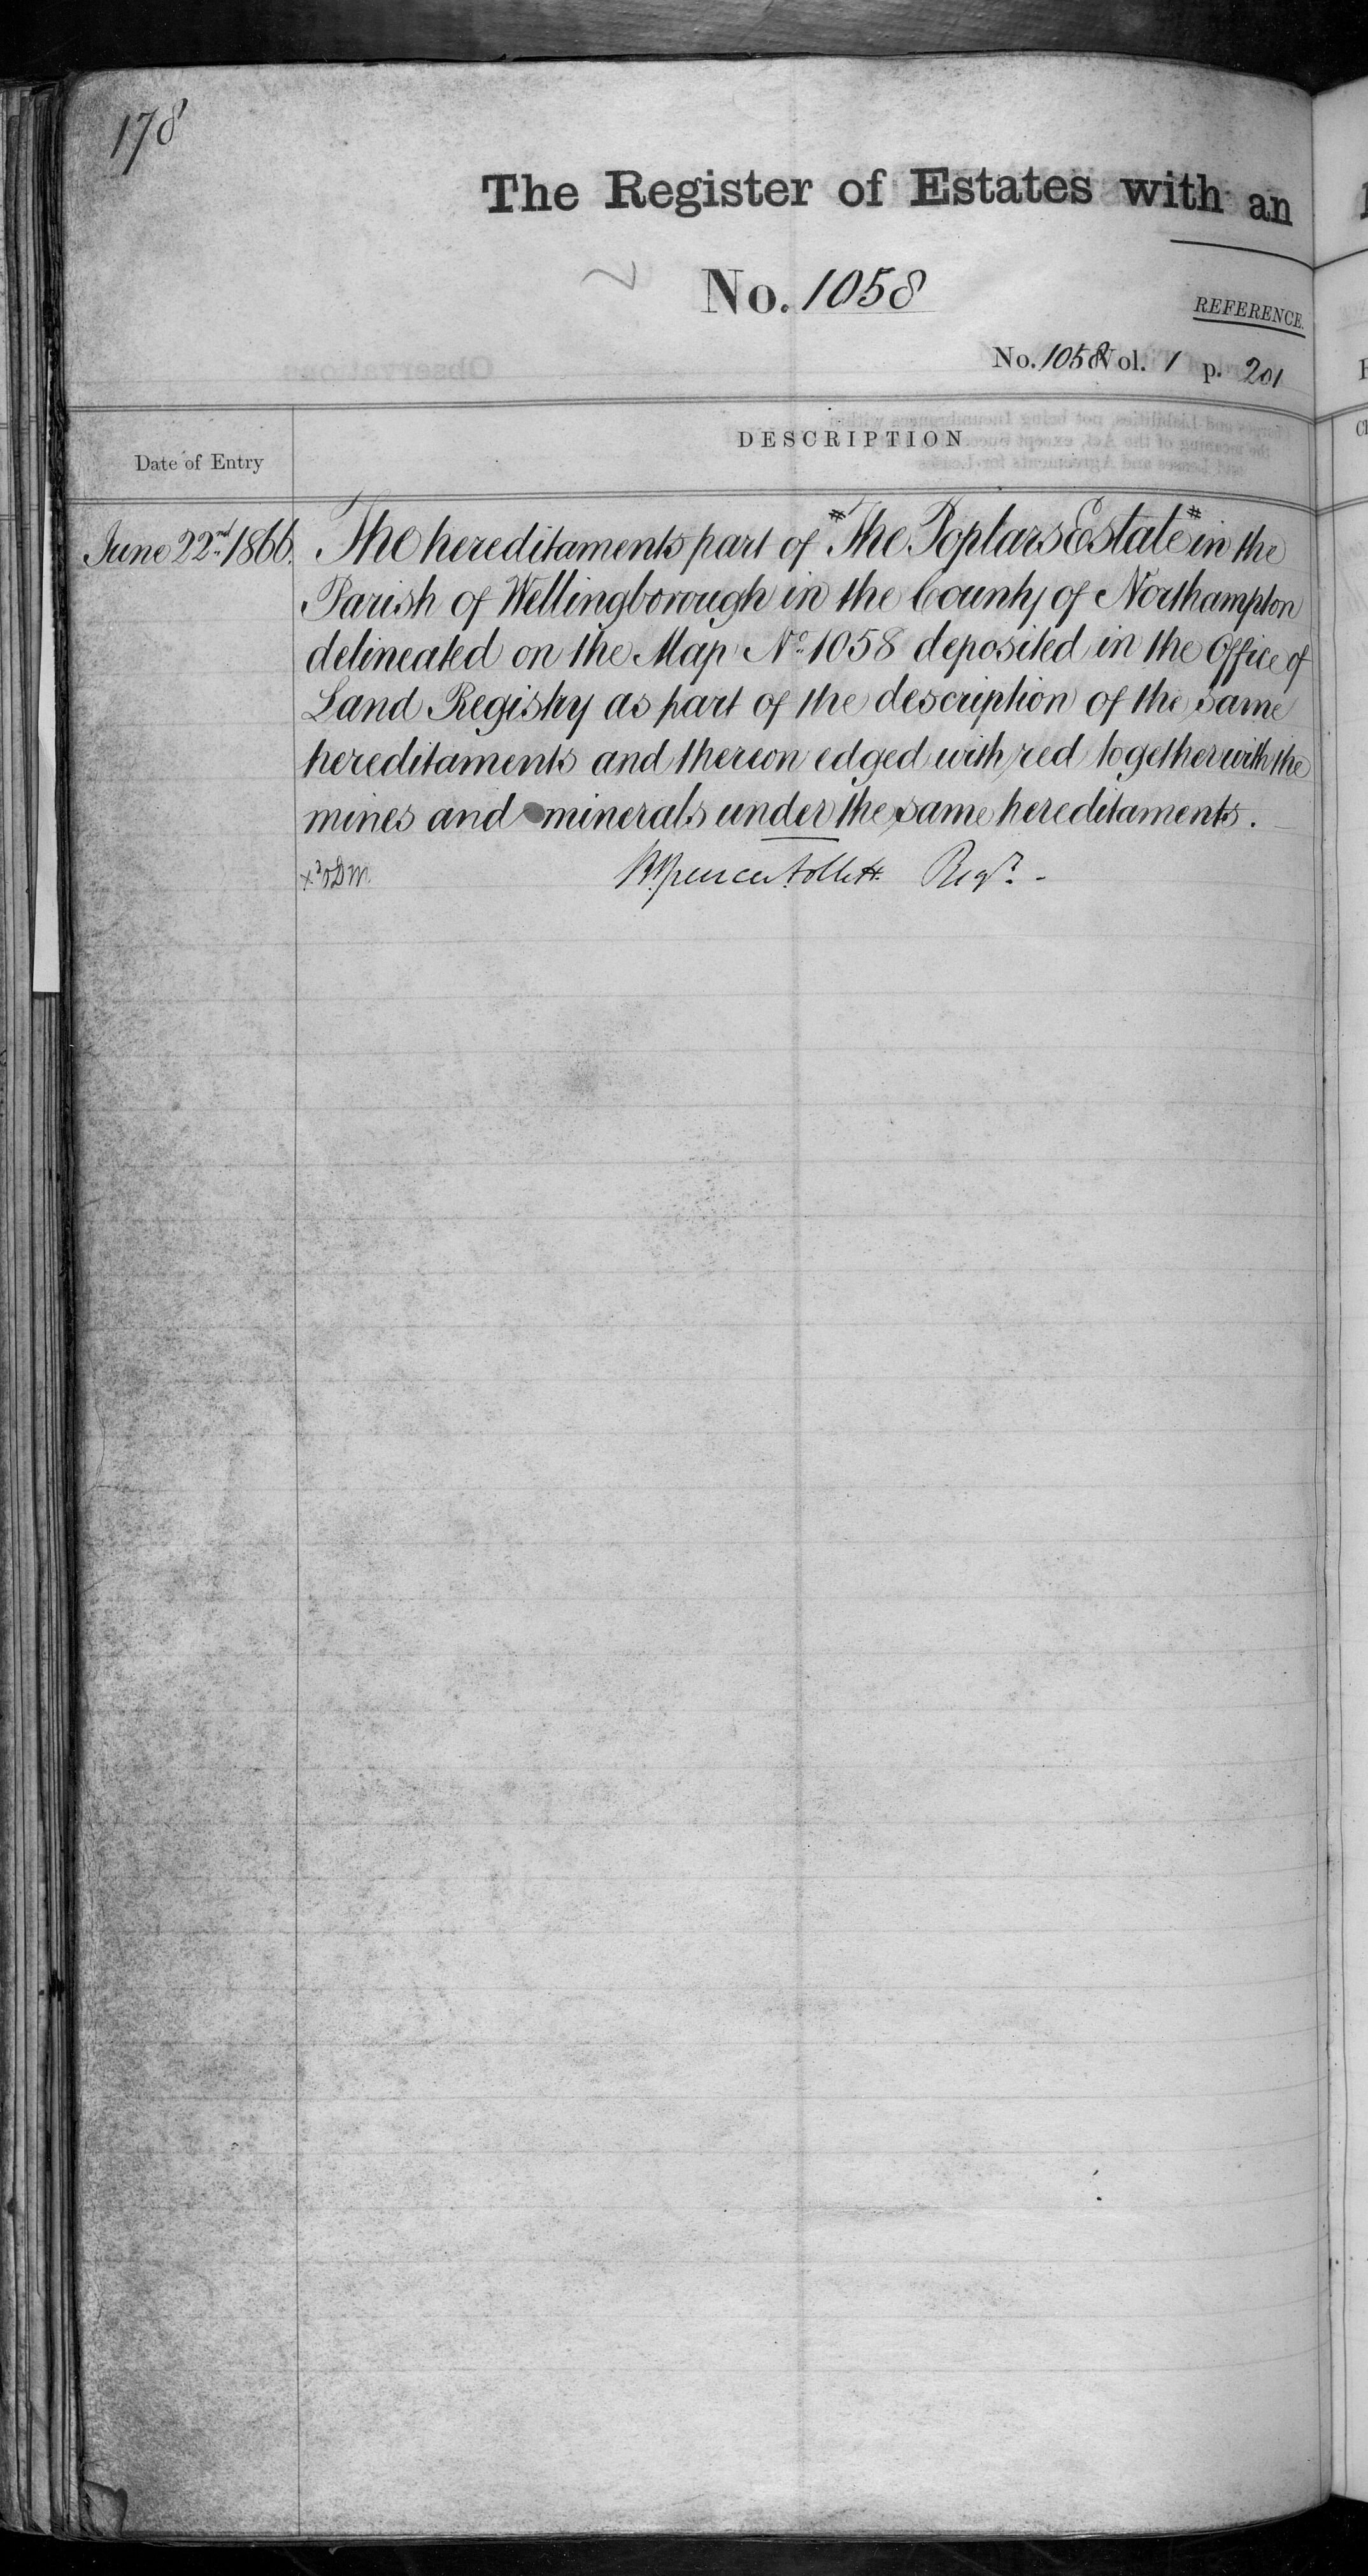 178
The Register of Estates with an
No. 1058
REFERENCE.
No. 1058 Vol. 1 p. 201
DESCRIPTION
Date of Entry
June 22nd. 1866. The hereditaments part of "The Poplars Estate" in the
Parish of Wellingborough in the County of Northampton
delineated on the Map No. 1058 deposited in the Office of
Land Registry as part of the description of the same
hereditaments and thereon edged with red together with the
mines and minerals under the same hereditaments.
Brent Spencer Follett Regr.